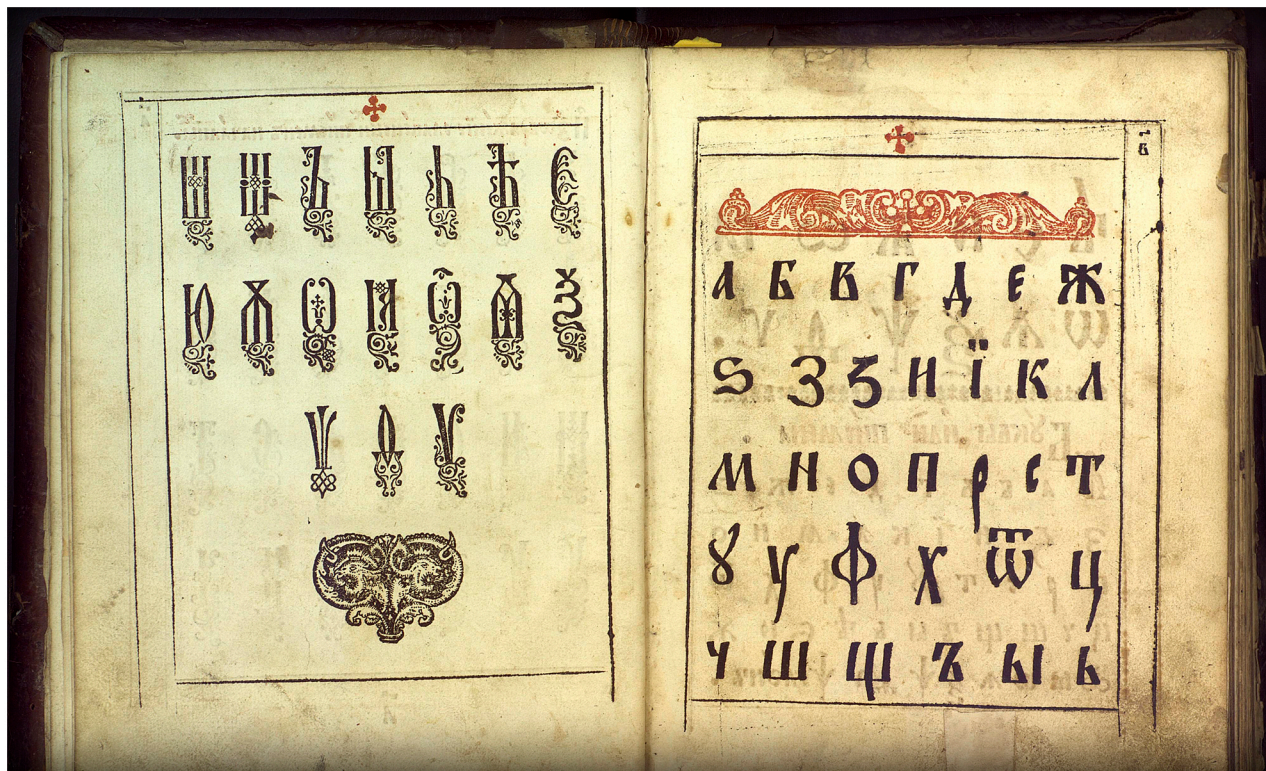 Ш Щ Ъ Ы Ь Ѣ Є
Ю Ѫ Ѻ Ꙗ Ѽ Ѧ Ѯ
Ѱ Ѳ Ѵ
А Б В Г Д Е Ж
Ѕ З Ʒ И Ї К Л
М Н О П Р С Т
Ꙋ У Ф Х Ѿ Ц
Ч Ш Щ Ъ Ы Ь